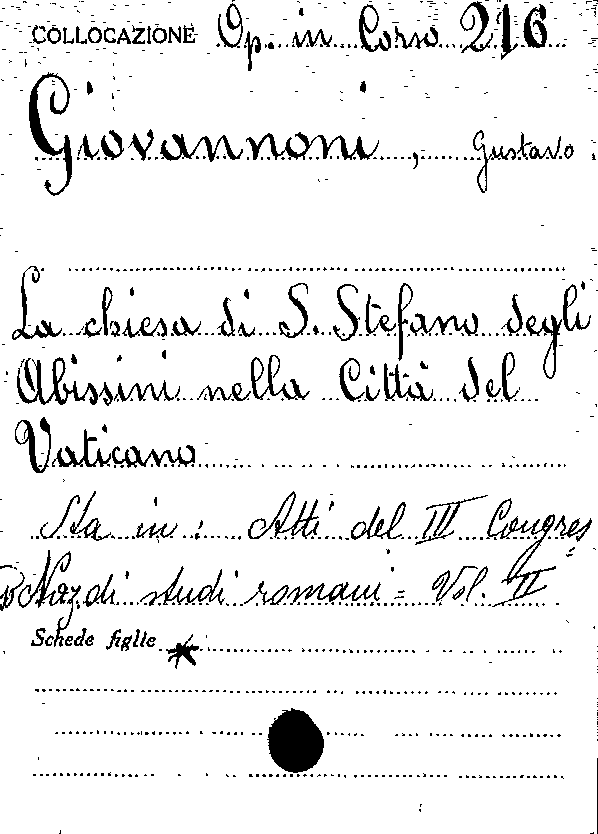 COLLOCAZIONE Op. in Corso 216
Giovannoni, Gustavo.
La chiesa di S. Stefano degli
Abissini nella Città del
Vaticano
Sta in: Atti del III Congres=
so Naz. di studi romani = Vol. II
Schede figlie